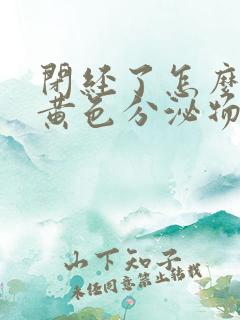 閉經了怎麼
黃色分泌物
山下知子
未經同意禁止轉載